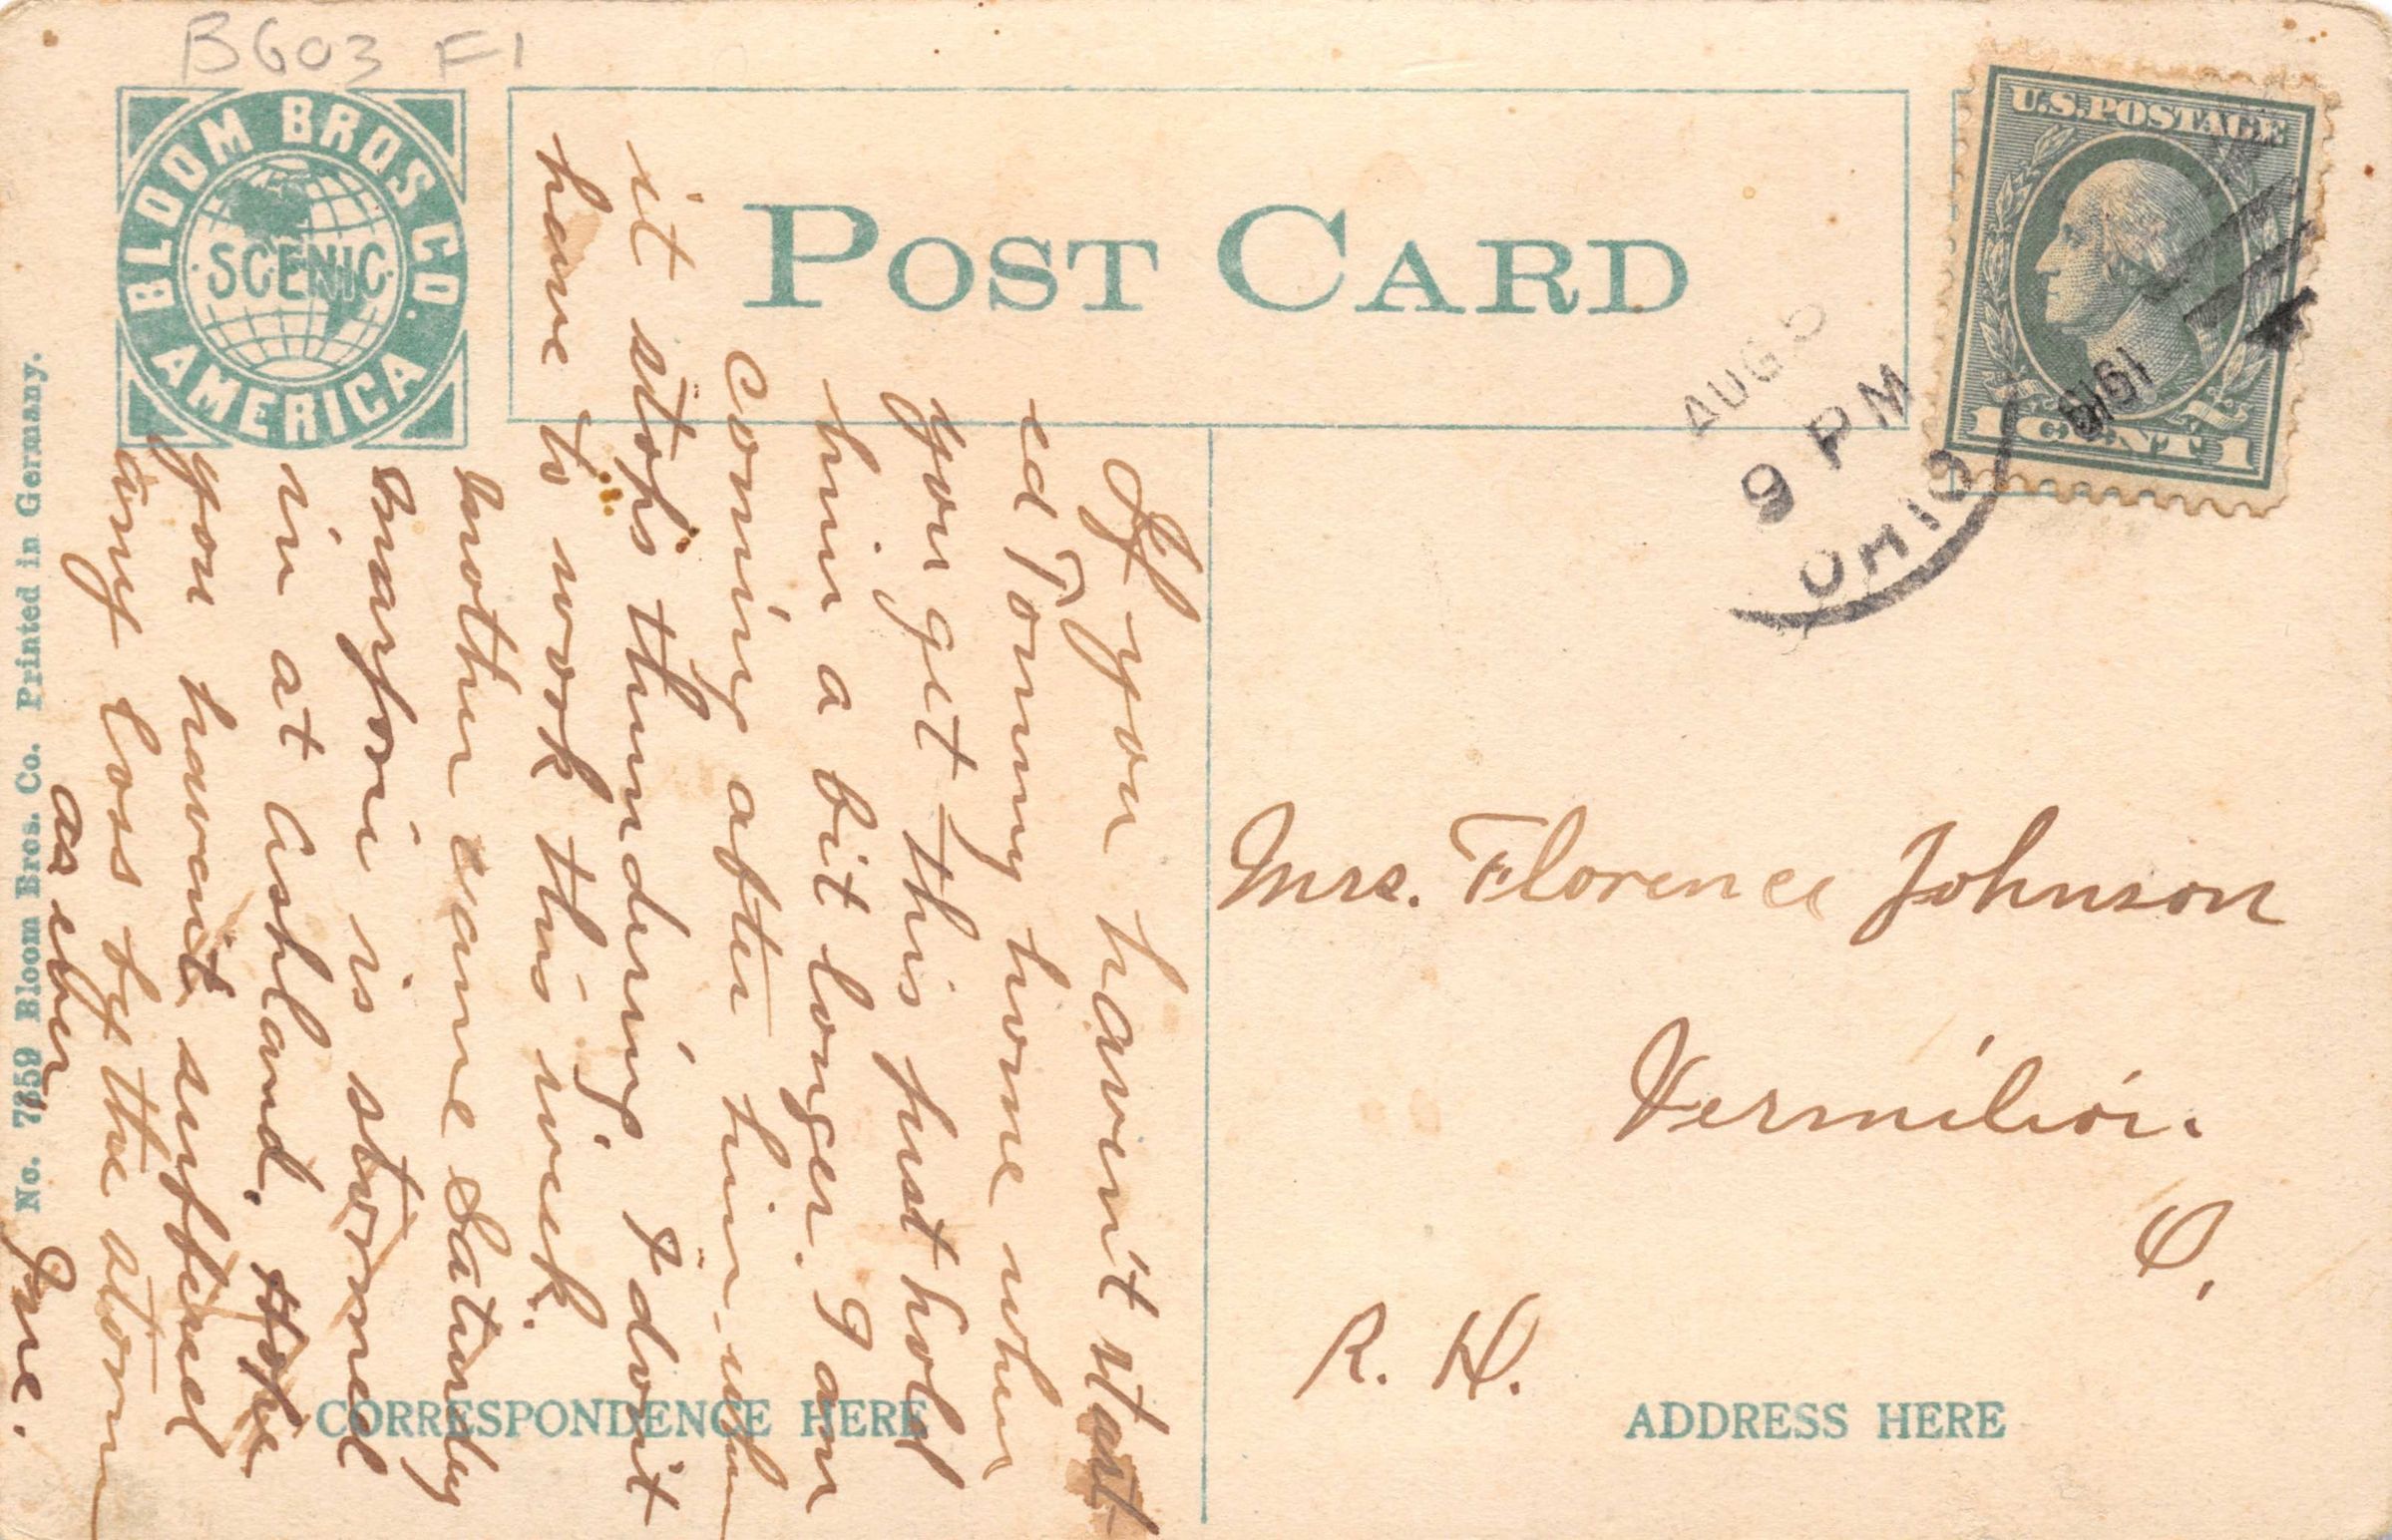 B603 F1
BLOOM BROS. CO.
SCENIC
AMERICA
POST CARD
U.S. POSTAGE
1 CENT 1
AUG 5
9 PM
OHIO
191
No. 7359 Bloom Bros. Co. Printed in Germany.
If you havin't start
ed Tommy home when
you get this just hold
him a bit longer. I am
coming after him when
it stops thundering I don't
have to work this week.
mother came Saturday
is stormed
in at ashland. Hope
you havent suffered
any loss by the storm
as ever
Mrs. Florence Johnson
Vermilion.
O.
R. H.
CORRESPONDENCE HERE
ADDRESS HERE